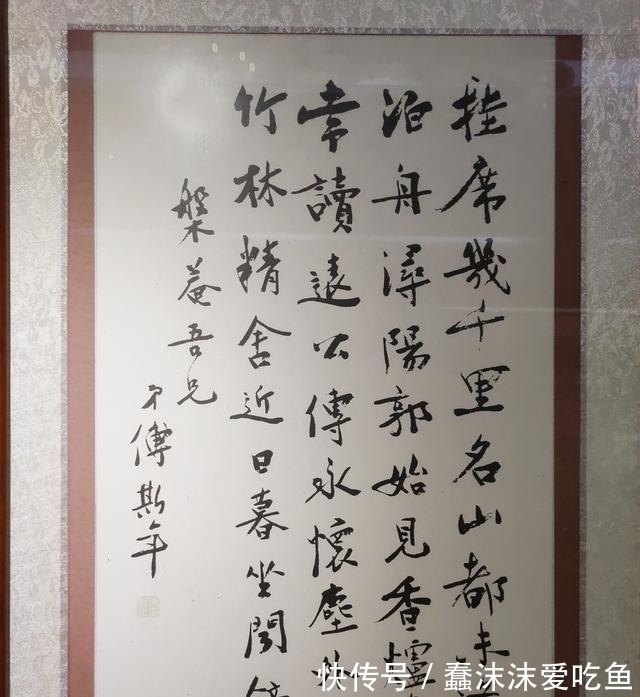 挂席幾千里名山都未
泊舟潯陽郭始見香爐
常讀遠公傳永懷塵
竹林精舍近日暮坐聞
槃菴吾兄
弟傅斯年
快传号 / 蠢沫沫爱吃鱼